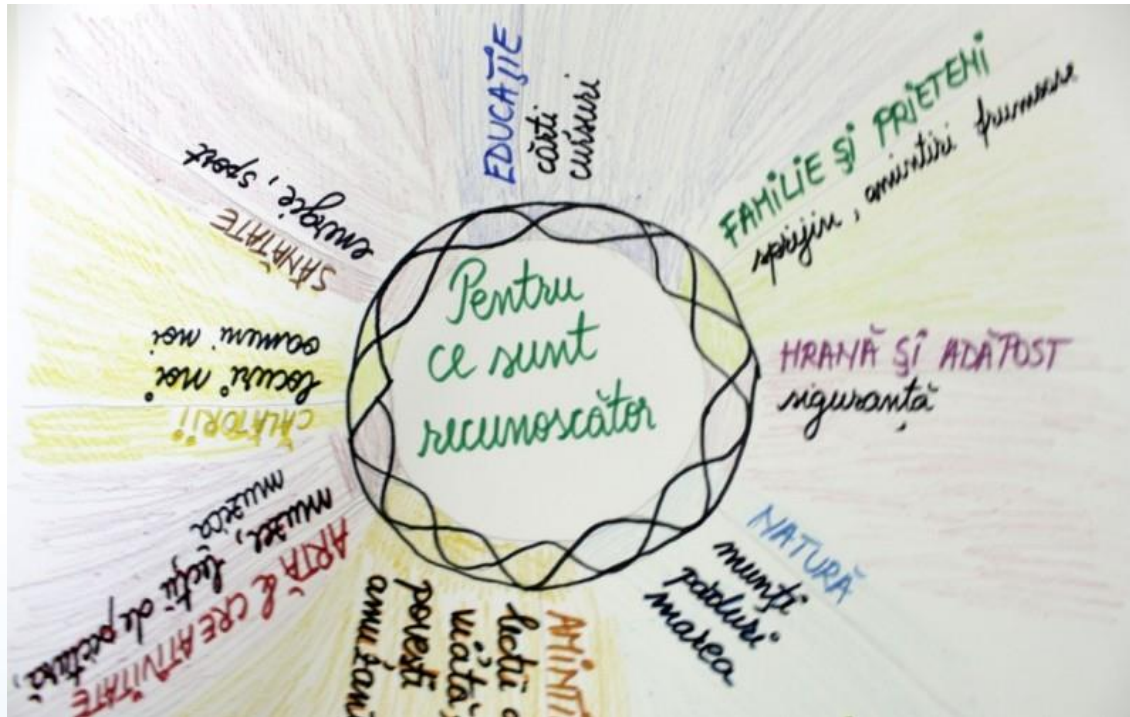 Pentru
ce sunt
recunoscător
EDUCAȚIE
cărți
cursuri
FAMILIE ȘI PRIETENI
sprijin, amintiri frumoase
HRANĂ ȘI ADĂPOST
siguranță
NATURĂ
munți
păduri
marea
AMINTI
lecții
viață,
povești
amuzan
ARTĂ & CREATIVITATE
muzee, lecții de pictură,
muzica
CĂLĂTORII
locuri noi
oameni noi
SĂNĂTATE
energie, sport